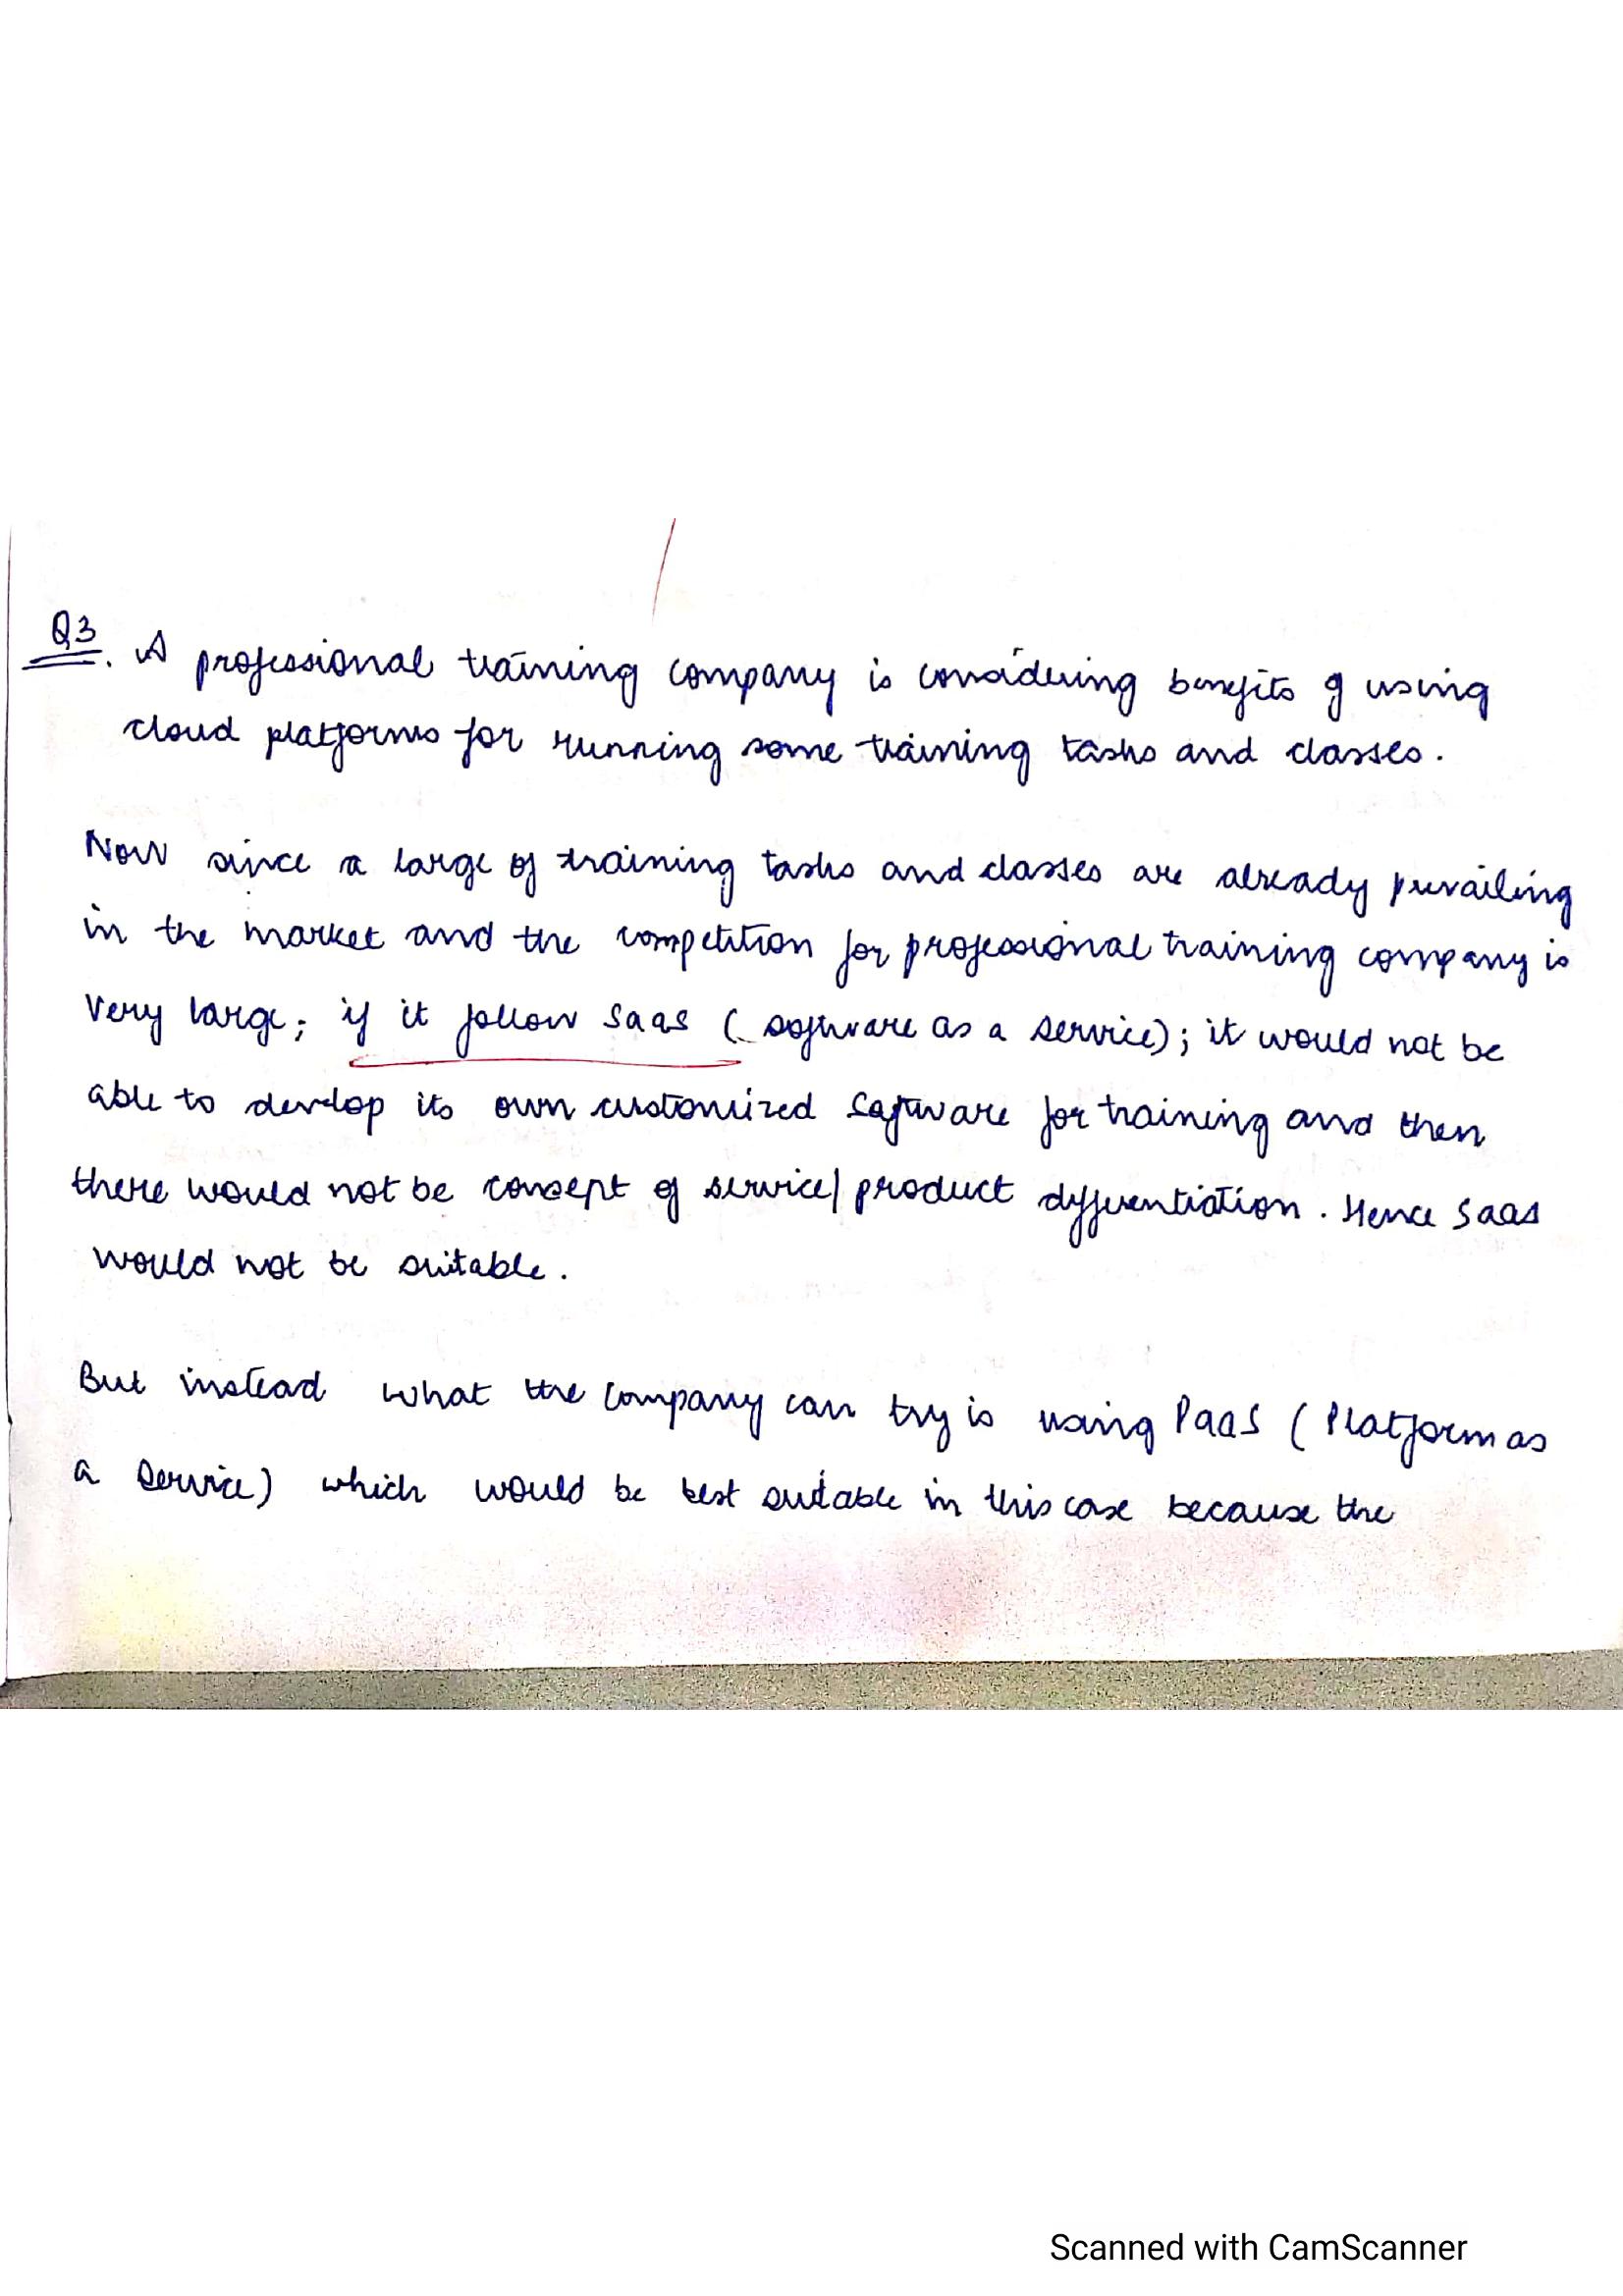 Q3. A professional training company is considering benefits of using
cloud platforms for running some training tasks and classes.
Now since a large of training tasks and classes are already prevailing
in the market and the competition for professional training company is
very large; if it follow saas (software as a service); it would not be
able to develop its own customized software for training and then
there would not be concept of service/product differentiation. Hence saas
would not be suitable.
But instead what the company can try is using PaaS (Platform as
a service) which would be best suitable in this case because the
Scanned with CamScanner